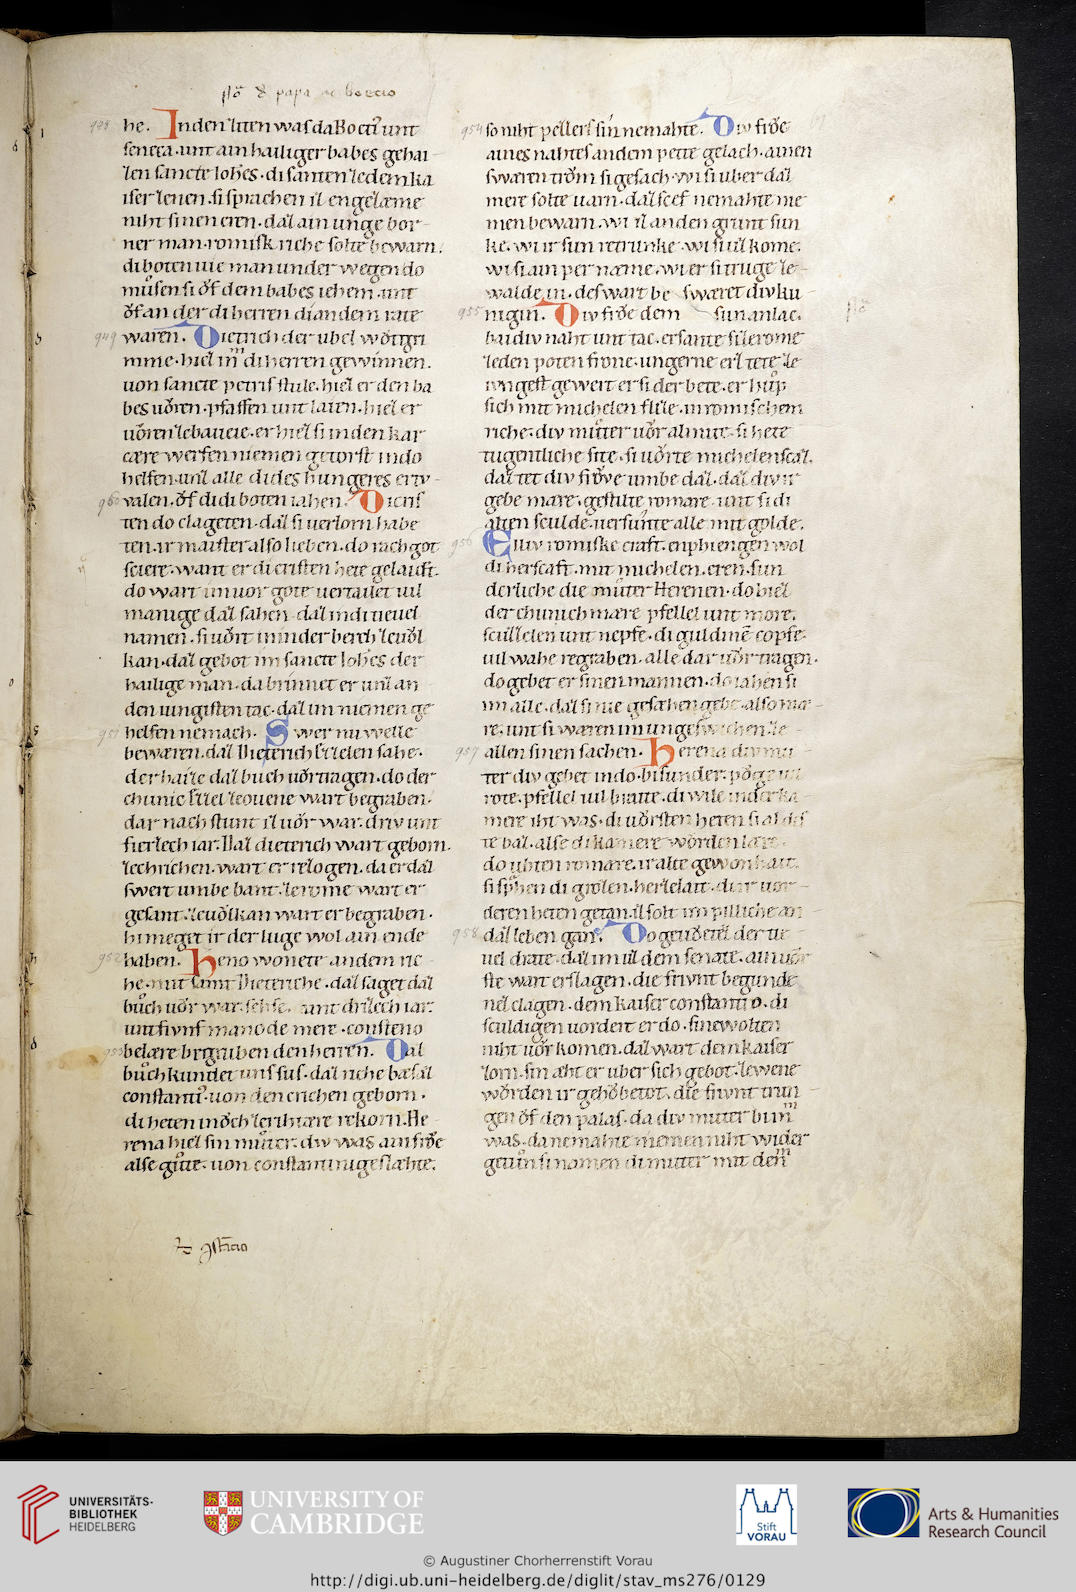 he. Inden ziten was da Boeti᷒ unt
seneca. unt ain hailiger babes gehai
zen sancte Iohes. di santen ze dem ka
iser zenen. si sprachen iz engezæme
niht sinen eren. daz ain unge bor
ner man. romisk riche solte bewarn.
di boten uie man under wegen do
můsen si ůf dem babes iehem. unt
ůf an der di herren di an dem rate
waren. Dietrich der ubel wůtgri
mme. hiez im̄ di herren gewinnen.
uon sancte petris stůle. hiez er den ba
bes uůren. pfaffen unt laien. hiez er
uůren ze baueie. er hiez si in den kar
cære werfen niemen getorst in do
helfen. unz alle di des hungeres ertv
valen. ůf di di boten iahen. Dicris
ten do clageten. daz si uerlorn habe
ten. ir maister also lieben. do rach got
sciere. want er di cristen hete gelaidt.
do wart im uor gote uertailet uil
manige daz sahen. daz in di tieuel
namen. si uůrt in in der berch ze uůl
kan. daz gebot im sancte Iohes der
hailige man. da brinnet er unz an
den iungisten tac. daz im niemen ge
helfen ne mach. Swer nu welle
bewæren. daz Dieterich Ezzelen sahe.
der haize daz buch uůrtragen. do der
chunic Ezzel ze ouene wart begraben.
dar nach stunt iz uůr war. driv unt
fierzech iar. Daz dieterich wart geborn.
ze chrichen. wart er rezogen. da er daz
swert umbe bant. ze rome wart er
gesant. ze uůlkan wart er begraben.
hi meget ir der luge wol ain ende
haben. Zeno wonete an dem ri
he. mit samt Dieteriche. daz saget daz
bůch uůr war. sehse. unt drizech iar.
unt fivnf manode mere. constino
belære begruben den herren. Daz
bůch kundet uns sus. daz riche besaz
constanti᷒. uon den crichen geborn.
di heten in ůch ze rihtære rekorn. He
rena hiez sin můter. div was ain frůe
alse gůte. uon constantini geslæhte.
so niht pezzers sin ne mahte. Div frůe
aines nahtes an dem pette gelach. ainen
swæren trům si gesach. wi si uber daz
mere solte uarn. daz scef ne mahte nie
men bewarn. wi iz an den grunt sun
ke. wi ir sun retrunke. wi si uz kome.
wi si ain per næme. wi er si truge ze
walde in. des wart be swæret div ku
nigin. Div frůe dem sun anlac.
bai div naht unt tac. er sante si ze rome
ze den poten frone. ungerne erz tete. ze
iungest gewert er si der bete. er hůp
sich mit michelen flize. in romischem
riche. div můter uůr al mite. si hete
tugentliche site. si uůrte michelen scaz.
daz tet div frůve umbe daz. daz div ir
gebe mare. gestilte romare. unt si di
alten sculde. uersůnte alle mit golde.
Elliv romiske craft. enphiengen wol
di herscaft. mit michelen. eren. sun
derliche die můter Herenen. do hiez
der chunich mare pfellel unt more.
scuzzelen unt nepfe. di guldinē copfe.
uil wahe regraben. alle dar uůr tragen.
do gebet er sinen mannen. do iahen si
im alle. daz si nie gesæhen gebe. also mæ
re. unt si waren im ungeswichen. ze
allen sinen sachen. Herena div mů
ter div gebet in do. bisunder.
rote. pfellel uil braite. di wile in der ka
mere iht was. di uůrsten heten si al des
te baz. alse di kamere worden lære.
do ubten romare. ir alte gewonhait.
si sp̄hen di grozen. herzelait. dir uor
deren heten getan. iz solt im pilliche an
daz leben gan. Do geuůrtez der tie
uel drate. daz im uz dem senate. ain uůr
ste wart erslagen. die frivnt begunde
nez clagen. dem kaiser constantino. di
sculdigen uordert er do. sine wolten
niht uůr komen. daz wart dem kaiser
zorn. sin æht er uber sich gebot. ze wene
wůrden ir gehůbetot. die frivnt trun
gen ůf den palas. da div muter binn̄
was. da ne mahte niemen niht wider
getůn. si nomen di muter mit dem̄
UNIVERSITÄTS-
BIBLIOTHEK
HEIDELBERG
UNIVERSITY OF
CAMBRIDGE
Stift
VORAU
Arts & Humanities
Research Council
© Augustiner Chorherrenstift Vorau
http://digi.ub.uni-heidelberg.de/diglit/stav_ms276/0129